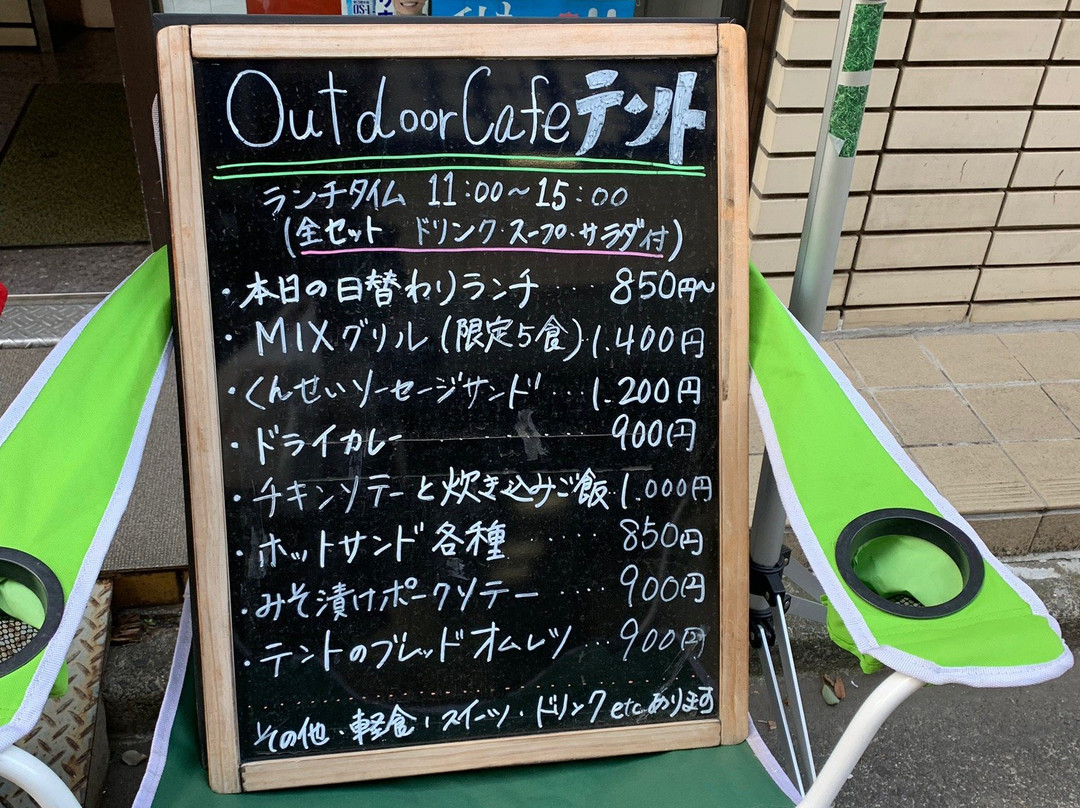 Outdoor Cafe テント
ランチタイム 11:00～15:00
(全セット ドリンク・スープ・サラダ付)
・本日の日替わりランチ … 850円～
・MIXグリル(限定5食)・1.400円
・くんせいソーセージサンド … 1.200円
・ドライカレー ……… 900円
・チキンソテーと炊き込みご飯 1.000円
・ホットサンド各種 ……… 850円
・みそ漬けポークソテー …… 900円
・テントのブレッドオムレツ … 900円
その他・軽食・スイーツ・ドリンク etc あります